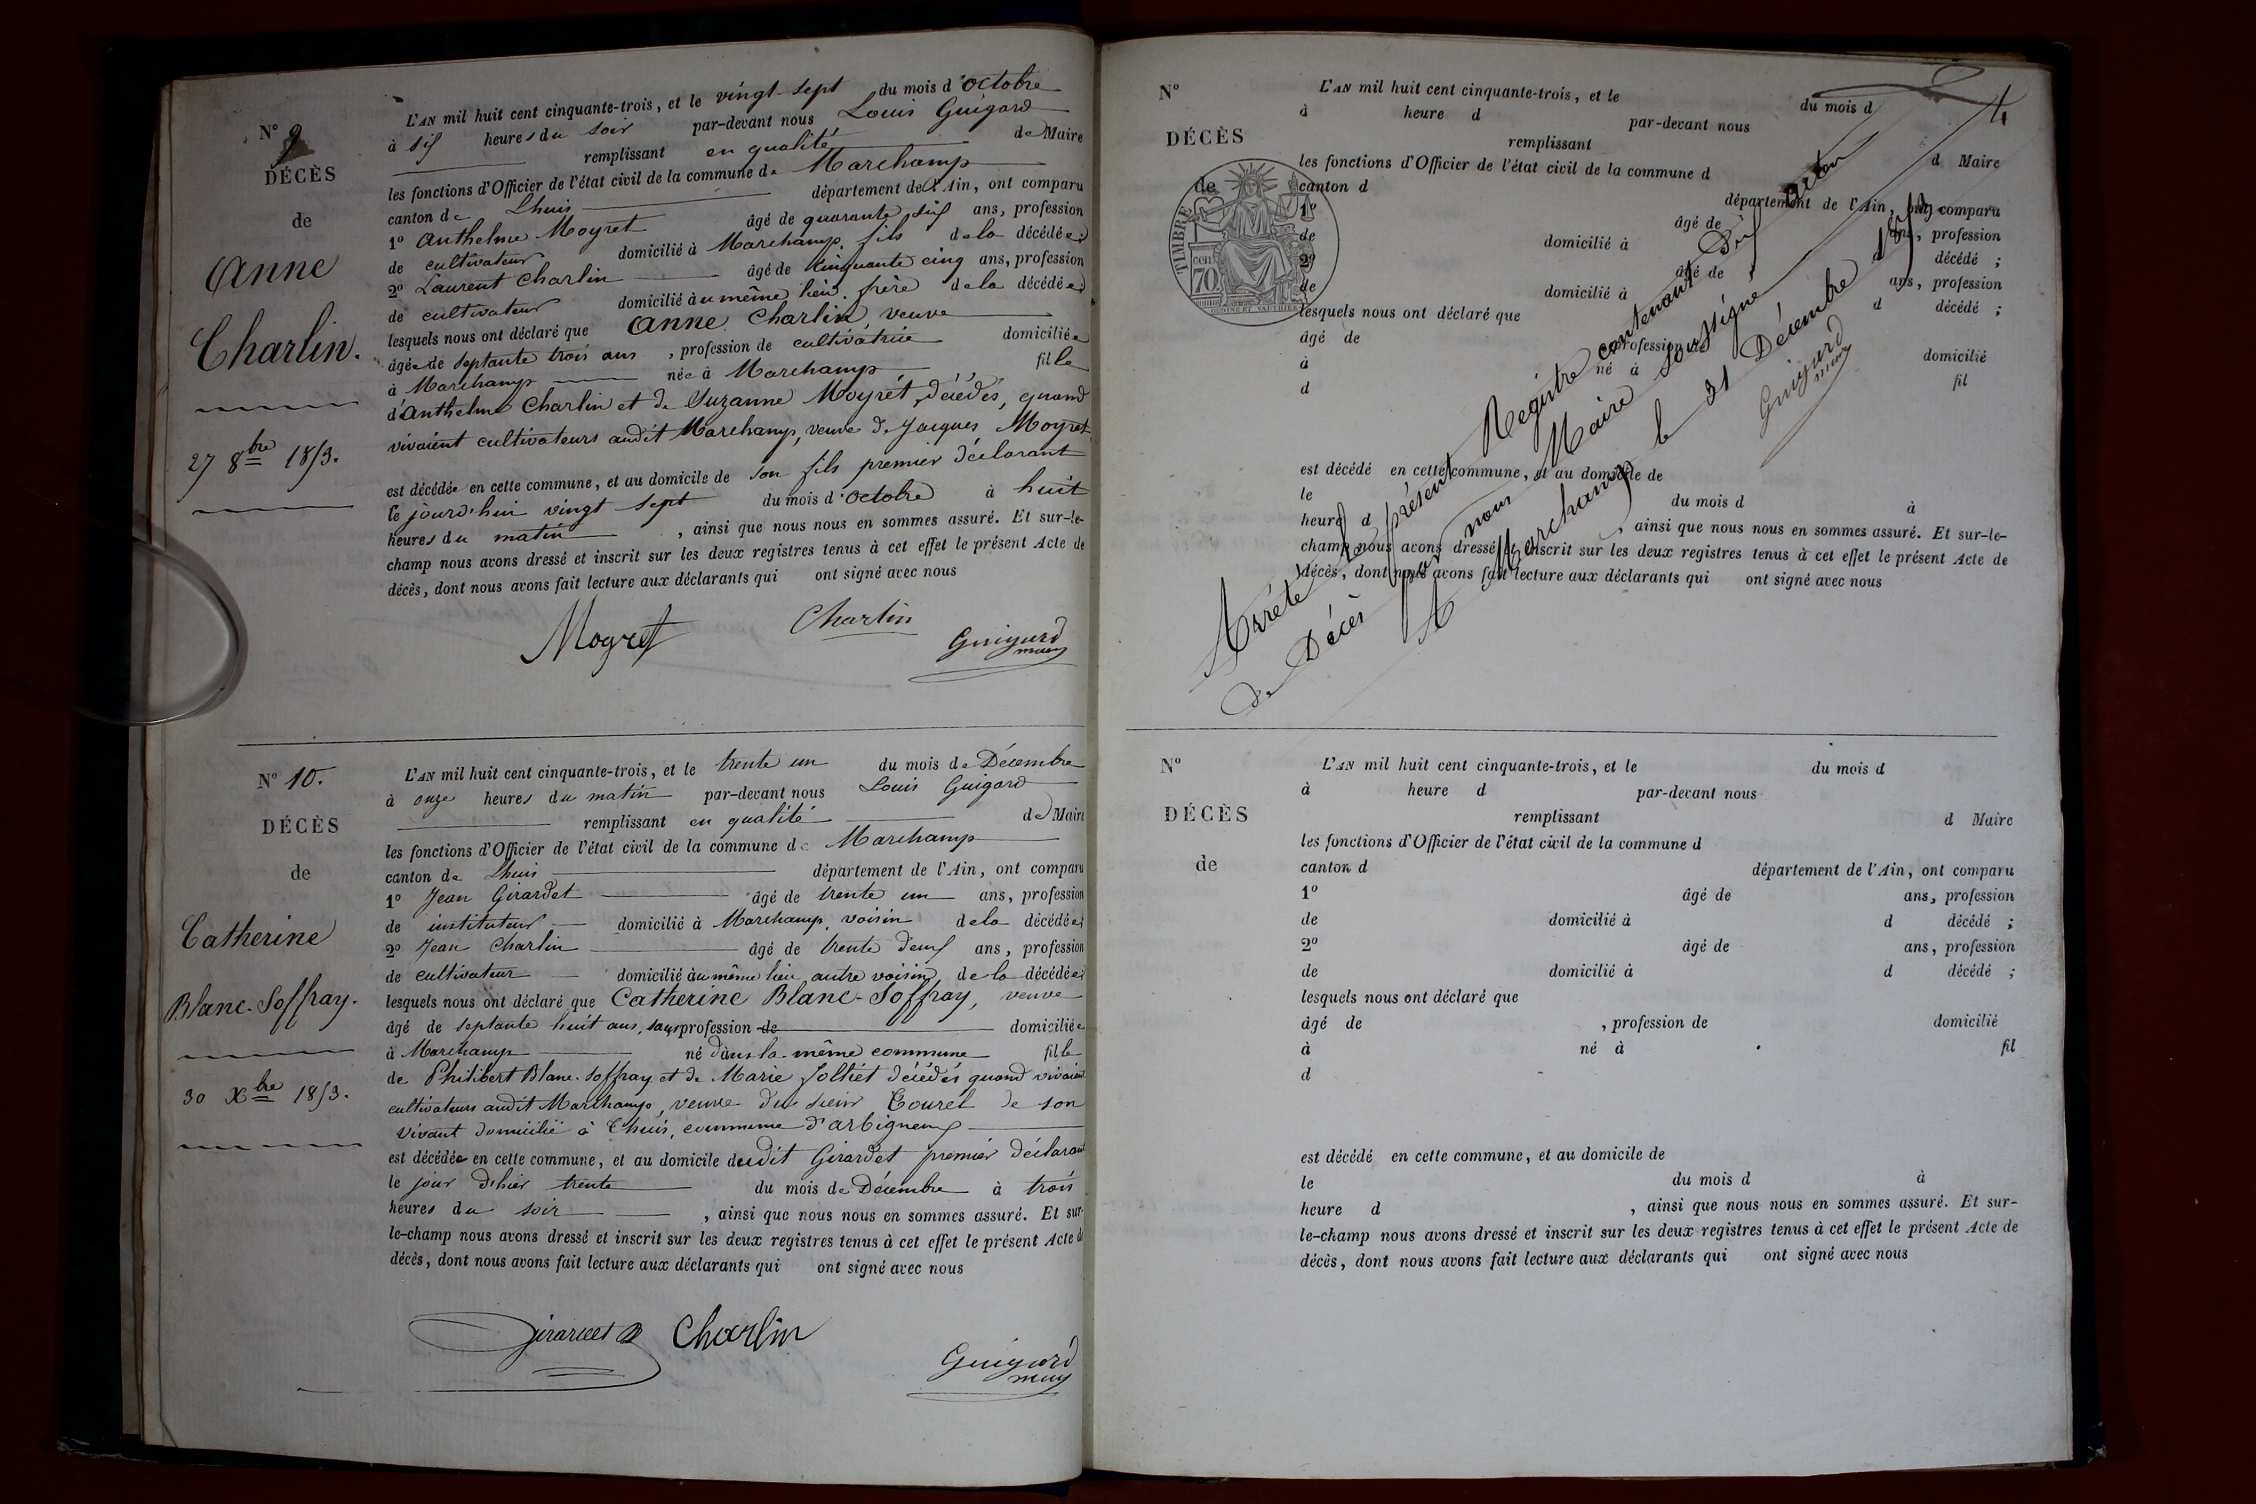 N° 9
DÉCÈS
de
Anne
Charlin.
27 8bre 1853.
L'AN mil huit cent cinquante-trois, et le vingt-sept du mois d'octobre
à six heures du soir par-devant nous Louis Guigard
remplissant en qualité de Maire
les fonctions d'Officier de l'état civil de la commune de Marchamp
canton de Lhuis département de l'Ain, ont comparu
1° Anthelme Moyret âgé de quarante six ans, profession
de cultivateur domicilié à Marchamp, fils de la décédée;
2° Laurent Charlin âgé de cinquante cinq ans, profession
de cultivateur domicilié au même lieu, frère de la décédée;
lesquels nous ont déclaré que Anne Charlin veuve
âgée de septante trois ans, profession de cultivatrice domiciliée
à Marchamp née à Marchamp fille
d'Anthelme Charlin et de Suzanne Moyret, décédés, quand
vivaient cultivateurs audit Marchamp, veuve de Jacques Moyret
est décédée en cette commune, et au domicile de son fils premier déclarant
le jourd'hui vingt sept du mois d'octobre à huit
heures du matin, ainsi que nous nous en sommes assuré. Et sur-le-
champ nous avons dressé et inscrit sur les deux registres tenus à cet effet le présent Acte de
décès, dont nous avons fait lecture aux déclarants qui ont signé avec nous
Moyret Charlin Guigard
maire
N° 10.
DÉCÈS
de
Catherine
Blanc-Soffray.
30 Xbre 1853.
L'AN mil huit cent cinquante-trois, et le trente un du mois de Décembre
à onze heures du matin par-devant nous Louis Guigard
remplissant en qualité de Maire
les fonctions d'Officier de l'état civil de la commune de Marchamp
canton de Lhuis département de l'Ain, ont comparu
1° Jean Girardet âgé de trente un ans, profession
de instituteur domicilié à Marchamp, voisin de la décédée;
2° Jean Charlin âgé de trente deux ans, profession
de cultivateur domicilié au même lieu, autre voisin, de la décédée;
lesquels nous ont déclaré que Catherine Blanc-Soffray, veuve
âgé de septante huit ans, sans profession de domiciliée
à Marchamp né dans la même commune fille
de Philibert Blanc-Soffray et de Marie Jolliet décédés quand vivaient
cultivateurs audit Marchamp, veuve du sieur Touret de son
vivant domicilié à Thuis, commune d'arbignieu
est décédée en cette commune, et au domicile dudit Girardet premier déclarant
le jour d'hier trente du mois de Décembre à trois
heures du soir, ainsi que nous nous en sommes assuré. Et sur-
le-champ nous avons dressé et inscrit sur les deux registres tenus à cet effet le présent Acte de
décès, dont nous avons fait lecture aux déclarants qui ont signé avec nous
Girardet Charlin Guigard
maire
4
N°
DÉCÈS
de
TIMBRE
70 cen
L'AN mil huit cent cinquante-trois, et le du mois d
à heure d par-devant nous
remplissant d Maire
les fonctions d'Officier de l'état civil de la commune d
canton d département de l'Ain, ont comparu
1° âgé de ans, profession
de domicilié à d décédé ;
2° âgé de ans, profession
de domicilié à d décédé ;
lesquels nous ont déclaré que
âgé de , profession de domicilié
à né à fil
d
est décédé en cette commune, et au domicile de
le du mois d à
heure d , ainsi que nous nous en sommes assuré. Et sur-le-
champ nous avons dressé et inscrit sur les deux registres tenus à cet effet le présent Acte de
décès, dont nous avons fait lecture aux déclarants qui ont signé avec nous
Arrêté le présent Registre contenant Dix actes
de Décès par nous Maire soussigné
A Marchamp le 31 Décembre 1853
Guigard
maire
N°
DÉCÈS
de
L'AN mil huit cent cinquante-trois, et le du mois d
à heure d par-devant nous
remplissant d Maire
les fonctions d'Officier de l'état civil de la commune d
canton d département de l'Ain, ont comparu
1° âgé de ans, profession
de domicilié à d décédé ;
2° âgé de ans, profession
de domicilié à d décédé ;
lesquels nous ont déclaré que
âgé de , profession de domicilié
à né à fil
d
est décédé en cette commune, et au domicile de
le du mois d à
heure d , ainsi que nous nous en sommes assuré. Et sur-
le-champ nous avons dressé et inscrit sur les deux registres tenus à cet effet le présent Acte de
décès, dont nous avons fait lecture aux déclarants qui ont signé avec nous